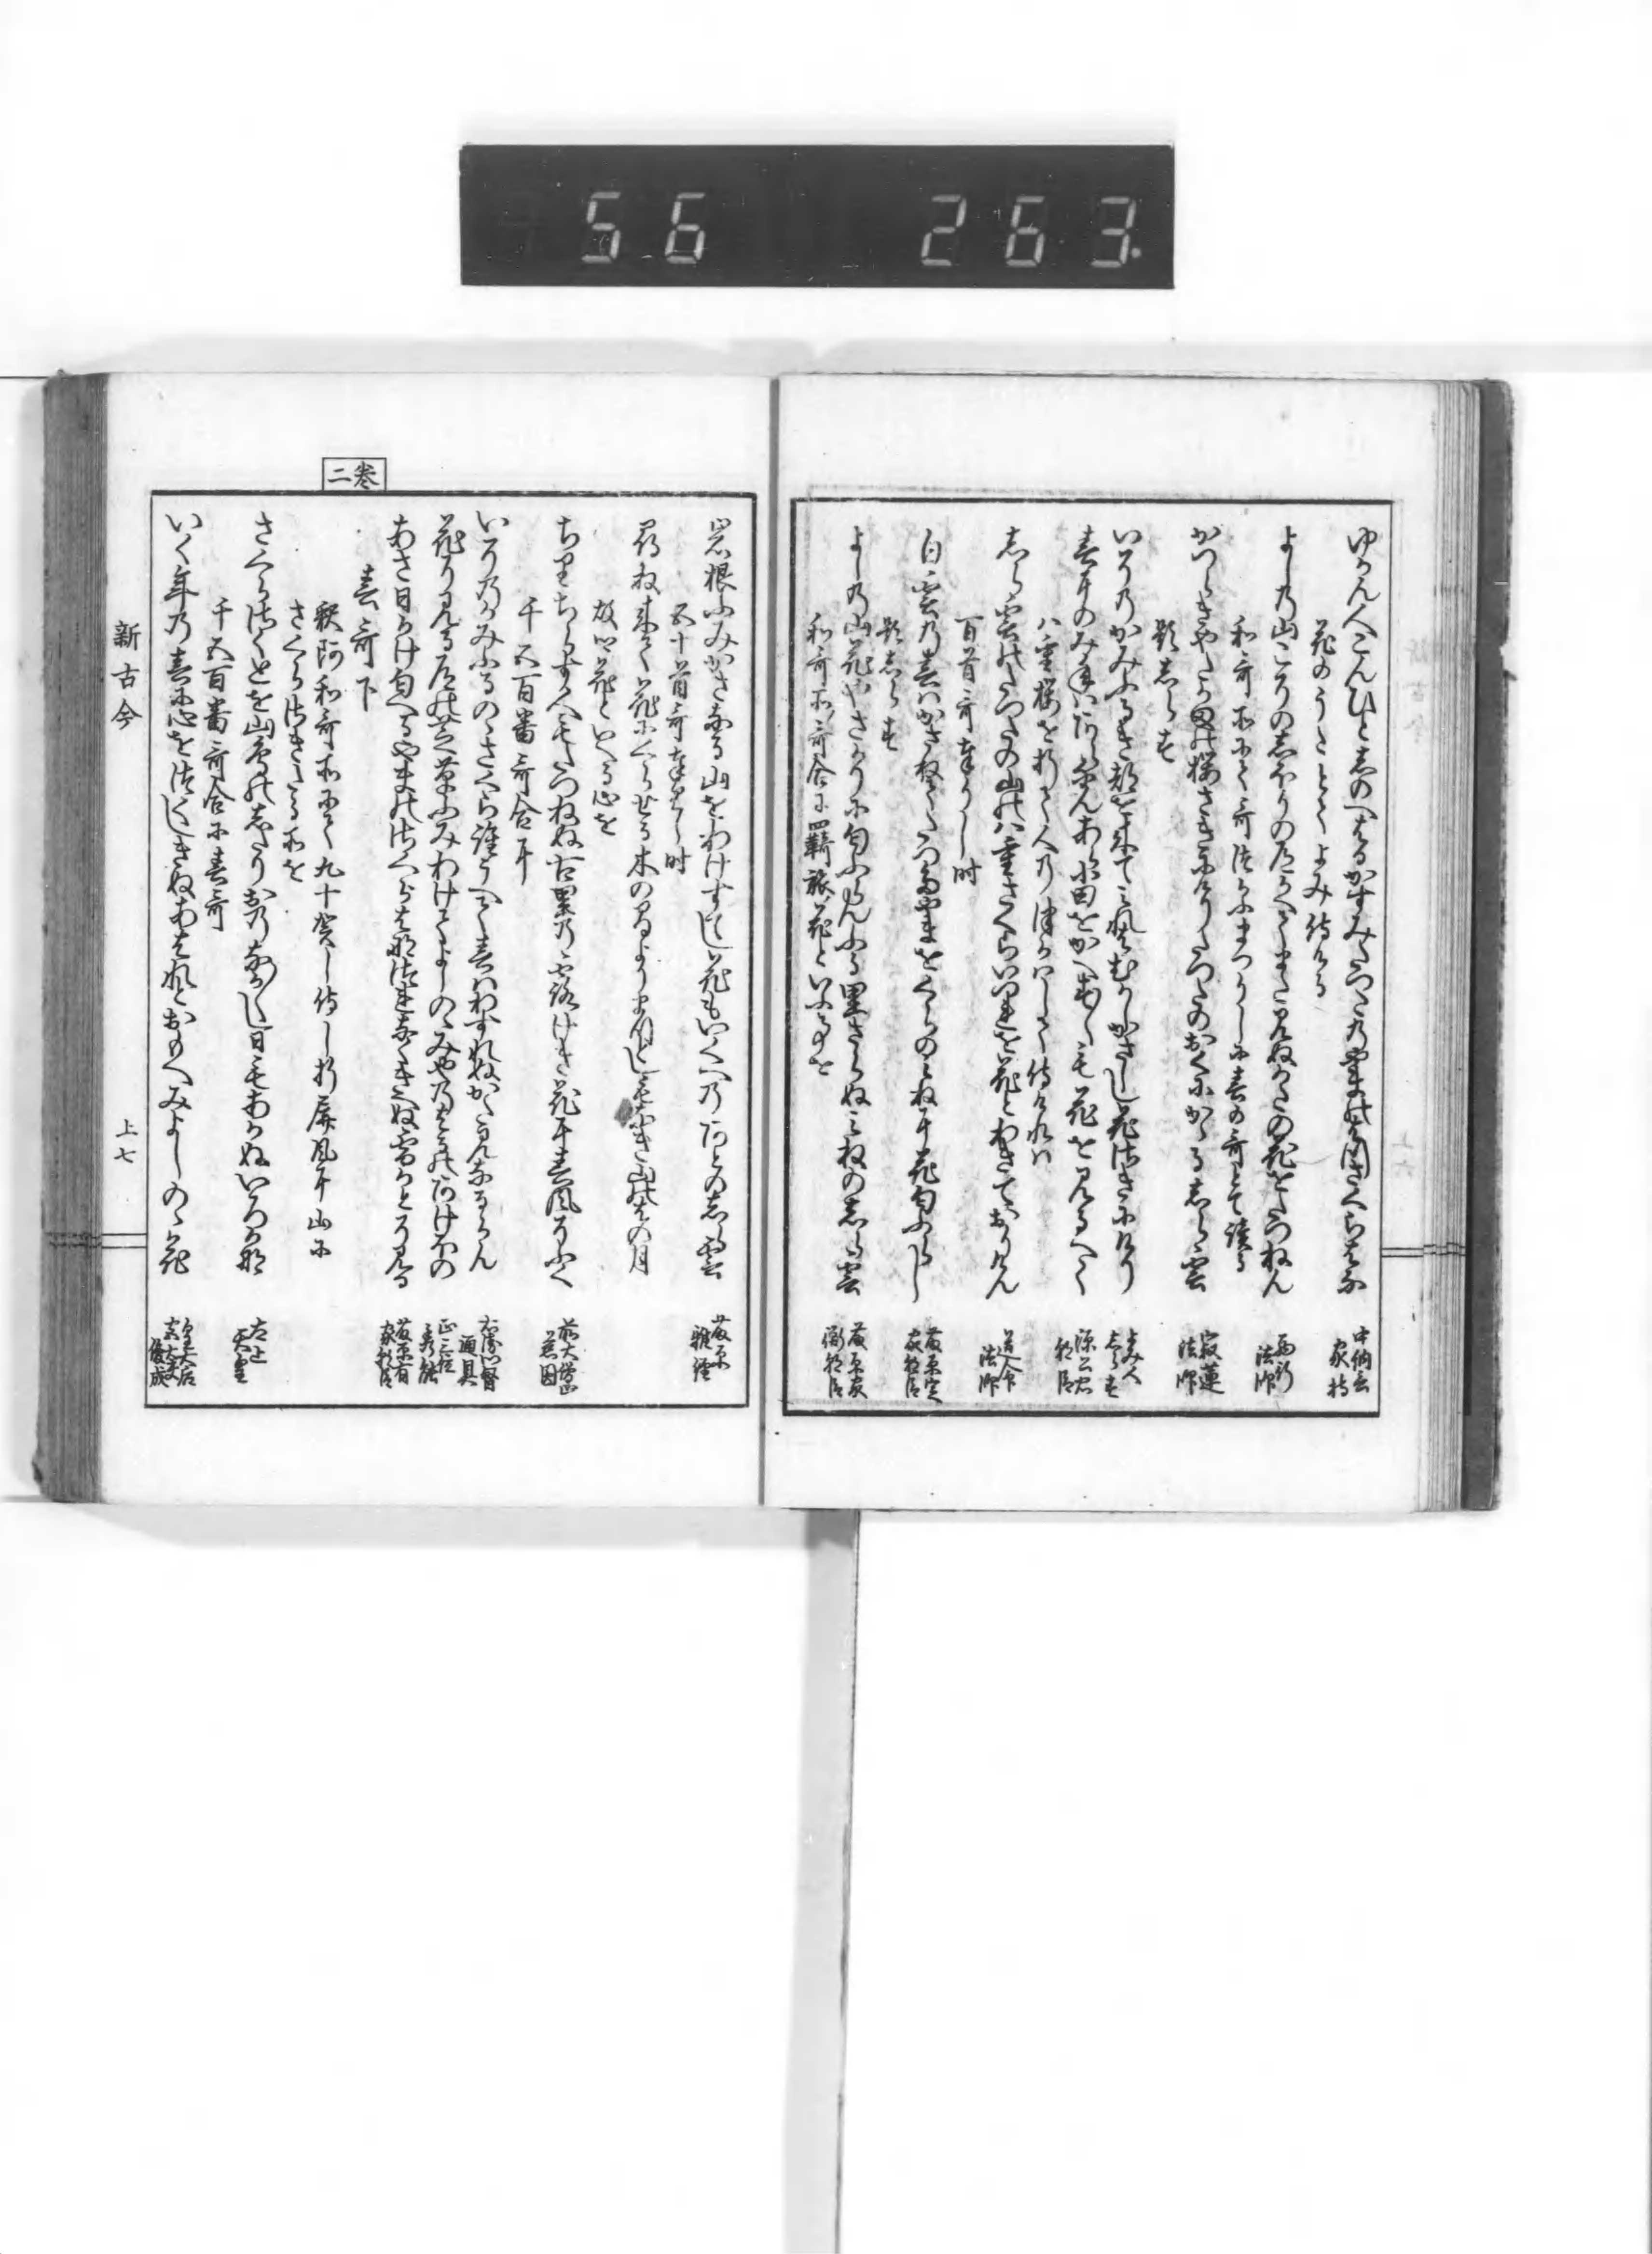 56 263
ゆかん人こん人しのへはるかすみたつたの山のはつさくらはな
中納言
家持
花のうたとてよみ侍ける
よしの山こそのしほりの道かへてまたみぬかたの花をたつねん
西行
法師
和哥所にて哥つかふまつりしに春の哥とて読る
かつらきやたかまの桜さきにけりたつたのおくにかゝるしら雲
寂蓮
法師
題しらす
いその神ふるき都を来てみれはむかしかさしし花さきにけり
よみ人
しらす
春にのみ年はあらなんあら小田をかへす〳〵も花をみるへく
源公忠
朝臣
八重桜を折て人の津かはして侍けれは
しら雲のたつたの山の八重さくらいつれを花とわきておりけん
道命
法師
百首哥奉りし時
白雲の春はかさねてたつた山をくらのみねに花匂ふらし
藤原定
家朝臣
題しらす
よしの山花やさかりに匂ふらんふる里さらぬみねのしら雲
藤原家
衡朝臣
和哥所哥合に羇旅花といふ事を
岩根ふみかさなる山をわけすてゝ花もいくへのあとのしら雲
藤原
雅経
五十首哥奉りし時
尋ね来て花にくらせる木のまより待としもなき山のはの月
故郷花といへる心を
ちりちらす人もたつねぬ古里の露けき花に春風そふく
前大僧正
慈円
千五百番哥合に
いその神ふるのゝさくら誰うへて春はわすれぬかたみなるらん
右衛門督
通具
花そみる道の芝草ふみわけてよしのゝみやの春のあけほの
正三位
季能
あさ日かけ匂へる山のさくら花つれなくきえぬ雪かとそみる
藤原有
家朝臣
二巻
春哥下
釈阿和哥所にて九十賀し侍し折屏風に山に
さくらさきたる所を
さくらさくとを山鳥のしたりおのなか〳〵し日もあかぬいろかな
太上
天皇
千五百番哥合に春哥
いく年の春に心をつくしきぬあはれとおもへみよしのゝ花
皇太后
宮大夫
俊成
新古今
上七